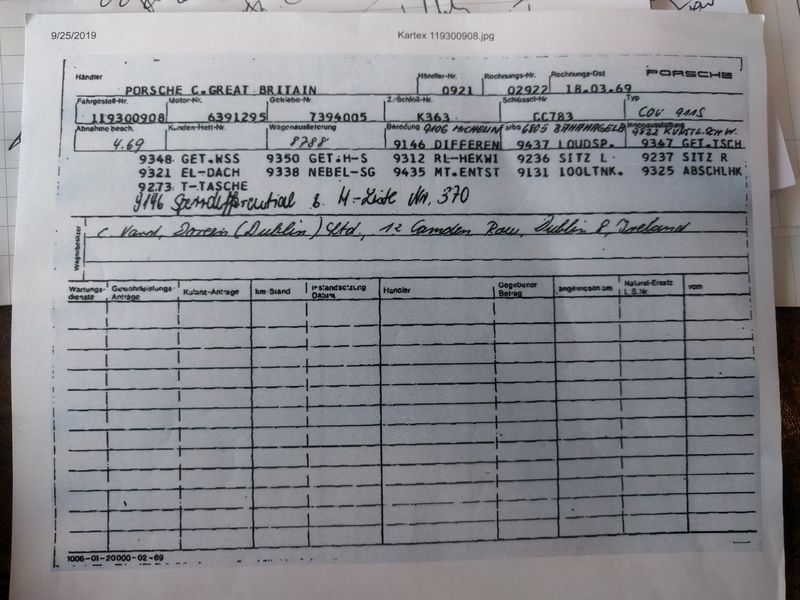 9/25/2019 Kartex 119300908.jpg
Händler Händler-Nr. Rechnungs-Nr. Rechnungs-Dat PORSCHE
PORSCHE C.GREAT BRITAIN 0921 02922 18.03.69
Fahrgestell-Nr. Motor-Nr. Getriebe-Nr. Z.-Schloß-Nr. Schlüssel-Nr. Typ
119300908 6391295 7394005 K363 CC783 COU 911S
Abnahme besch. Kunden-Heft-Nr. Wagenauslieferung Bereifung 9106 MICHELIN Farbe 6805 BAHAMAGELB Innenausstattung 9822 KUNSTL. SCHW.
4.69 8788 9146 DIFFEREN 9437 LOUDSP. 9367 GET.TSCH
9348 GET.WSS 9350 GET.H-S 9312 RL-HEKWI 9236 SITZ L 9237 SITZ R
9321 EL-DACH 9338 NEBEL-SG 9435 MT.ENTST 9131 100LTNK. 9325 ABSCHLHK
9273 T-TASCHE
9196 Sperrdifferential M-Liste Nr. 370
Wagenbesitzer
(Dublin) Ltd., 12 Camden Row, Dublin 8, Ireland
Wartungs-dienste Gewährleistungs-Anträge Kulanz-Anträge km-Stand Instandsetzung Datum Händler Gegebener Betrag angewiesen am Natural-Ersatz L.S.Nr. vom
1006-01-20000-02-69